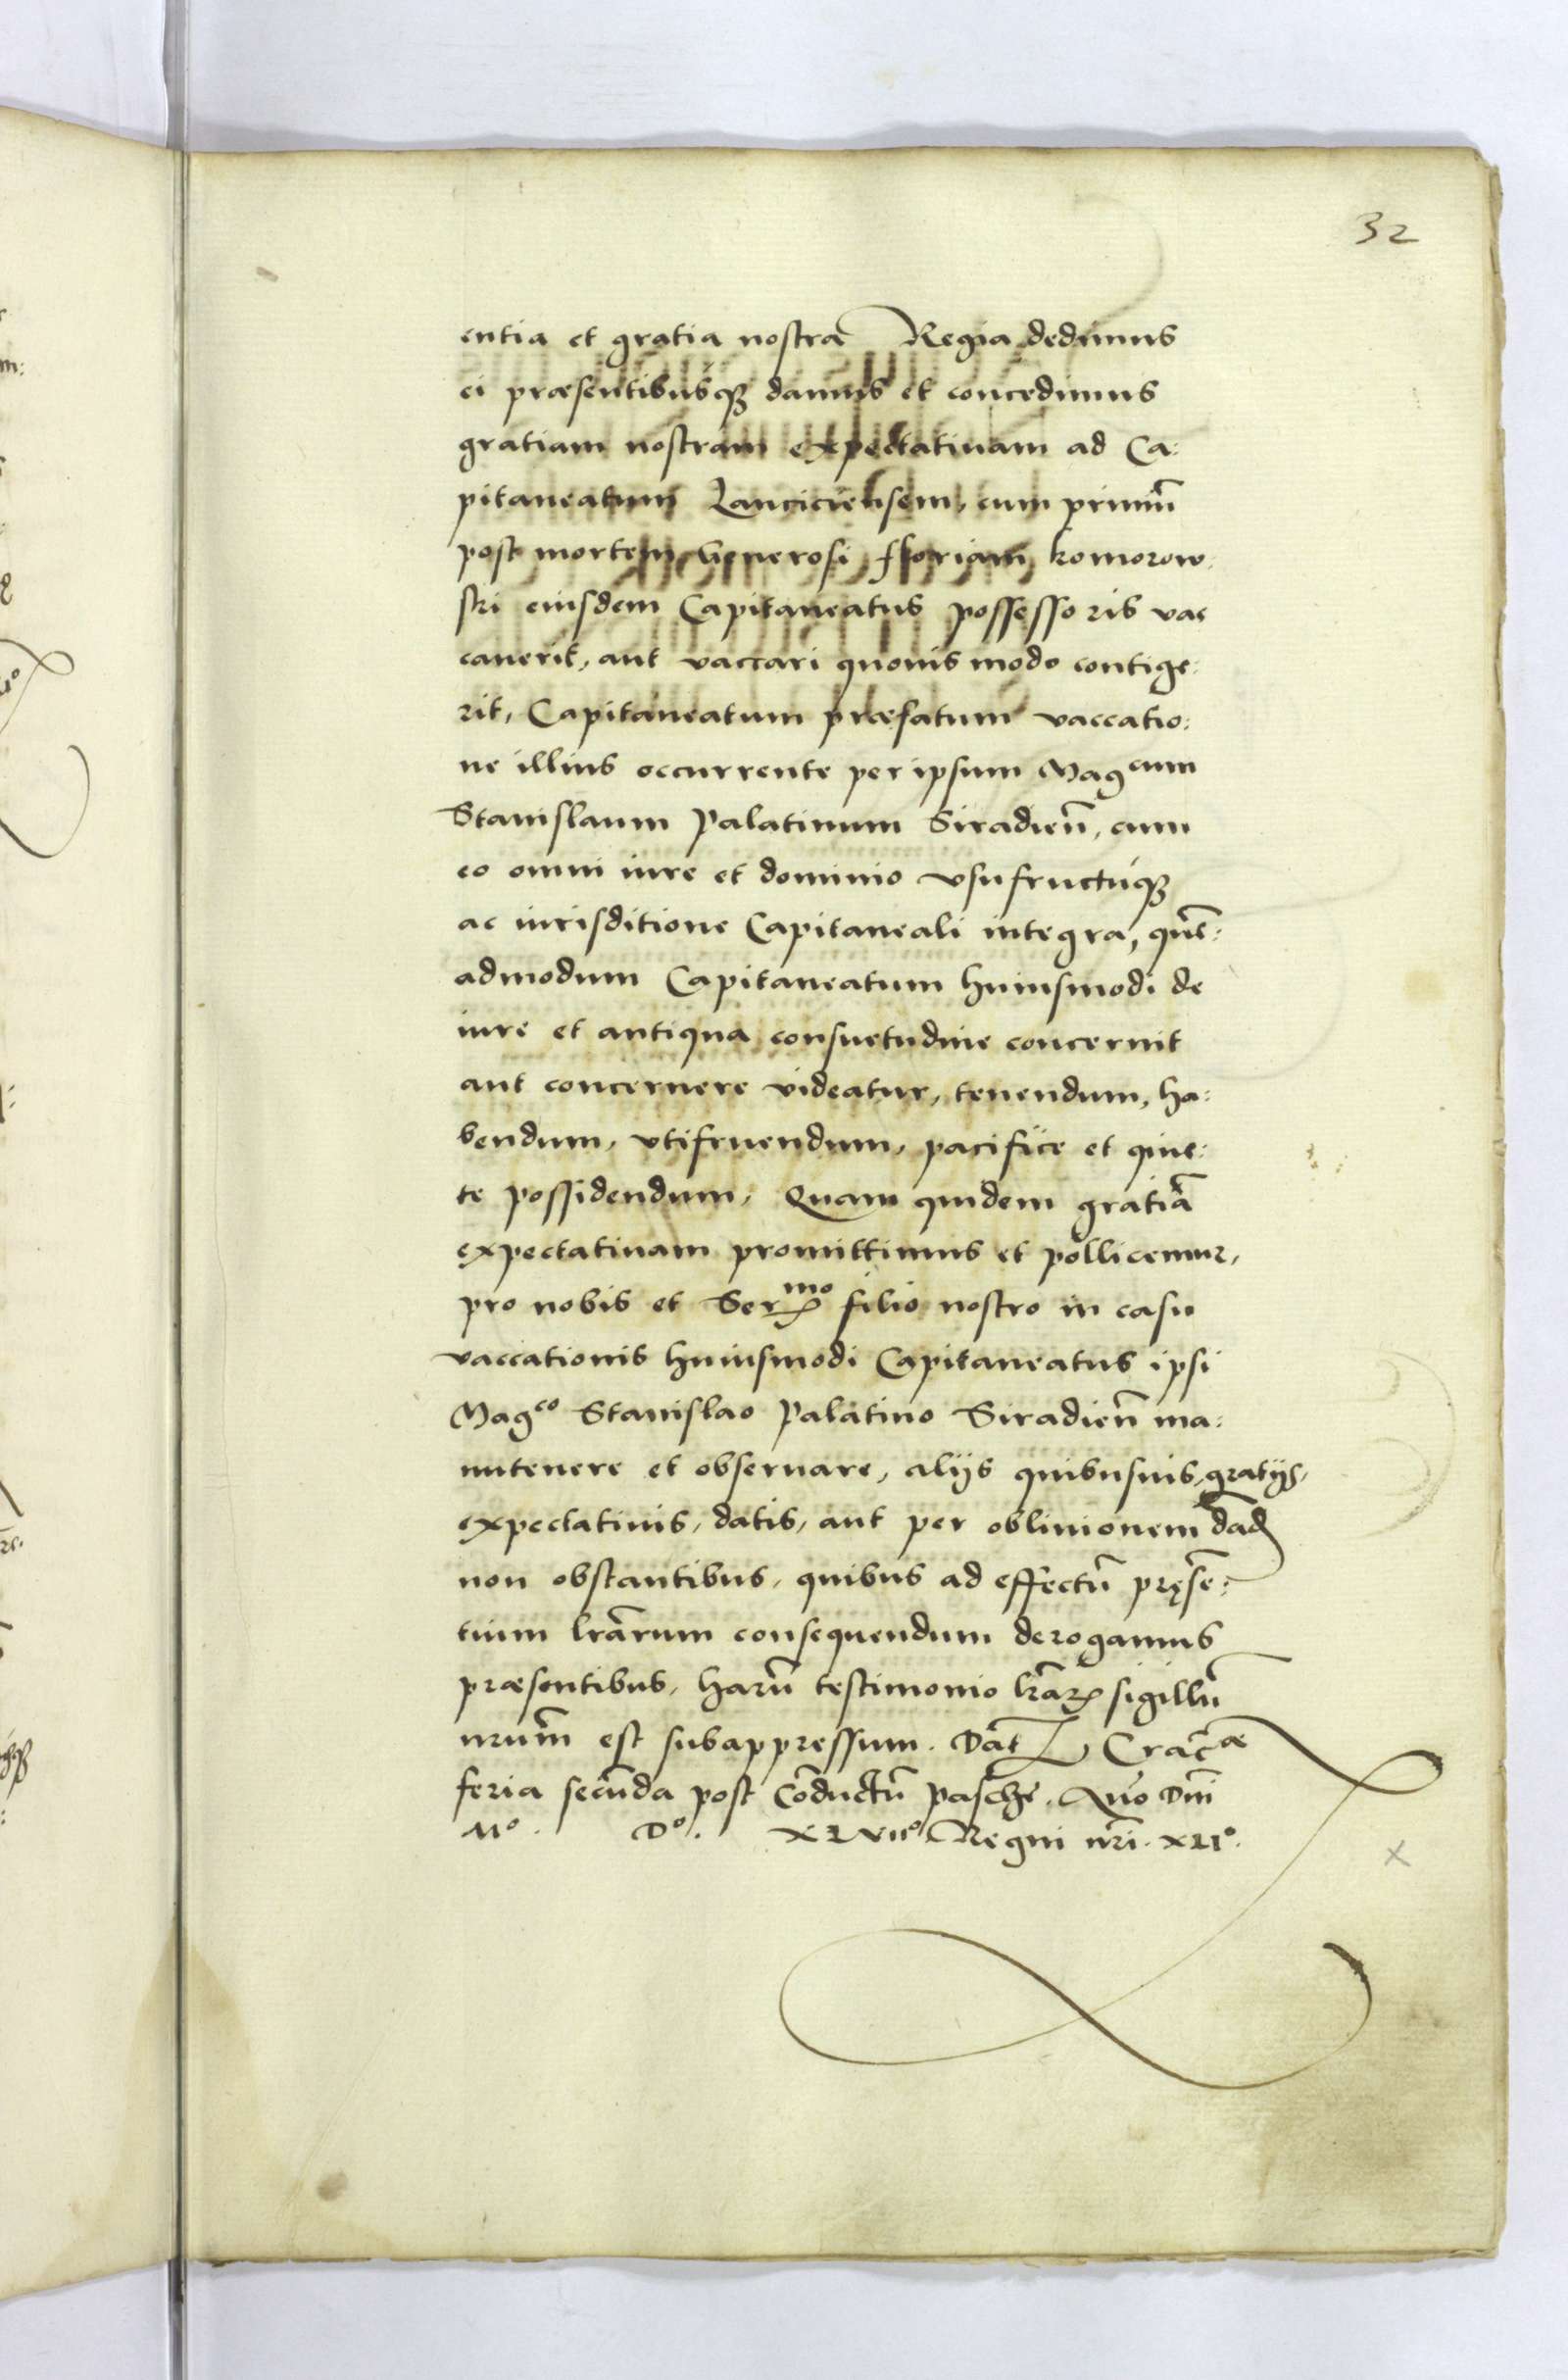 32
entia et gratia nostra Regia dedimus
ei præsentibusq̃ damus et concedimus
gratiam nostram expectatiuam ad Ca:
pitaneatum Lanciciensem, cum primũ
post mortem Generosi fforiam komorow:
ski eiusdem Capitaneatus possessoris vac
cauerit, aut vaccari quouis modo contige:
rit, Capitaneatum præfatum vaccatio:
ne illius occurrente per ipsum Mag cum
Stanislaum Palatinum Siradieñ, cum
eo omni iure et dominio vsufructúq̃
ac iurisditione Capitaneali integra, quẽ:
admodum Capitaneatum huiusmodi de
iure et antiqua consuetudine concernit
aut concernere videatur, tenendum, ha:
bendum, vtifruendum, pacifice et quie:
te possidendum, Quam quidem gratiã
expectatiuam promittimus et pollicemur,
pro nobis et Ser mo filio nostro in casu
vaccationis huiusmodi Capitaneatus ipsi
Mag co Stanislao Palatino Siradieñ ma:
nutenere et obseruare, alijs quibusuis, gratijs,
expectatiuis, datis, aut per obliuionem dãd
non obstantibus, quibus ad effectũ pręsẽ:
tium lrãrum consequendum derogamus
præsentibus, harũ testimonio lrãrꝝ sigillũ
nrum̃ est subappressum. Dãt Crac̃ æ
feria secũda post Cõductũ pasche. Año Dñi
Mo. Do. XLVIIo Regni nr̃i. XLIo.